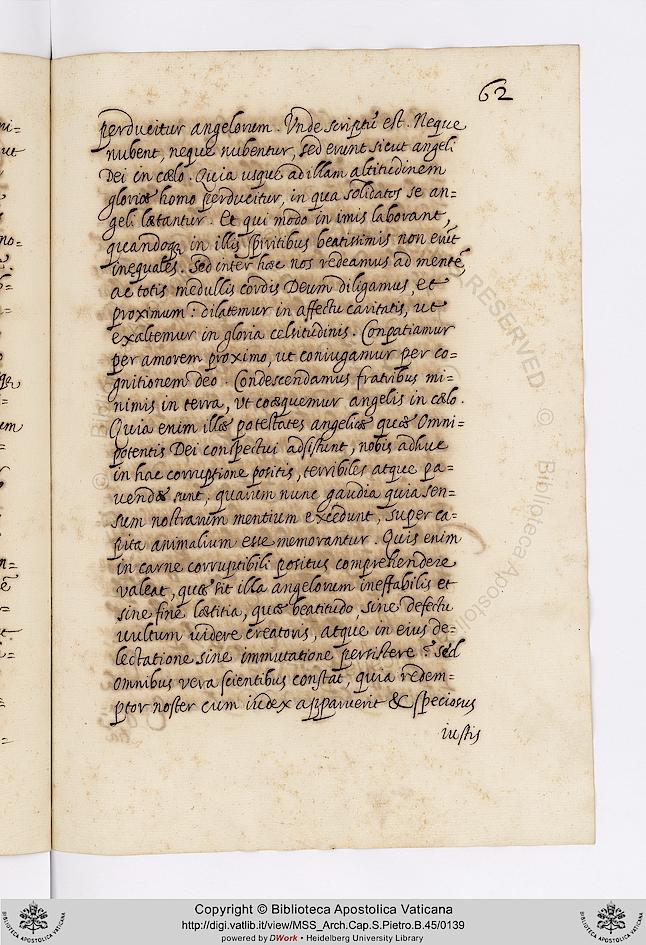 62
perducitur angelorum. Vnde scriptũ est. Neque
nubent, neque nubentur, sed erunt sicut angeli
Dei in cœlo. Quia usque ad illam altitudinem
gloriæ homo perducitur, in qua solidatos se an=
geli lætantur. Et qui modo in imis laborant,
quandoq; in illis spiritibus beatissimis non erũt
inequales. Sed inter hæc nos redeamus ad mentẽ,
ac totis medullis cordis Deum diligamus, et
proximum: dilatemur in affectu caritatis, ut
exaltemur in gloria celsitudinis. Conpatiamur
per amorem proximo, ut coniugamur per co=
gnitionem deo. Condescendamus fratribus mi=
nimis in terra, Vt coæquemur angelis in cœlo.
Quia enim illæ potestates angelicæ quæ Omni=
potentis Dei conspectui adsistunt, nobis adhuc
in hac corruptione positis, terribiles atque pa=
uendæ sunt, quarum nunc gaudia quia sen=
sum nostrarum mentium excedunt, super ca=
pita animalium esse memorantur. Quis enim
in carne corruptibili positus comprehendere
valeat, quæ sit illa angelorum ineffabilis et
sine fine lætitia, quæ beatitudo, sine defectu
uultum uidere creatoris, atque in eius de=
lectatione sine immutatione persistere? sed
Omnibus vera scientibus constat, quia redem=
ptor noster cum iudex apparuerit & speciosus
iustis
RESERVED © Biblioteca Apostol
Copyright © Biblioteca Apostolica Vaticana
http://digi.vatlib.it/view/MSS_Arch.Cap.S.Pietro.B.45/0139
powered by DWork • Heidelberg University Library